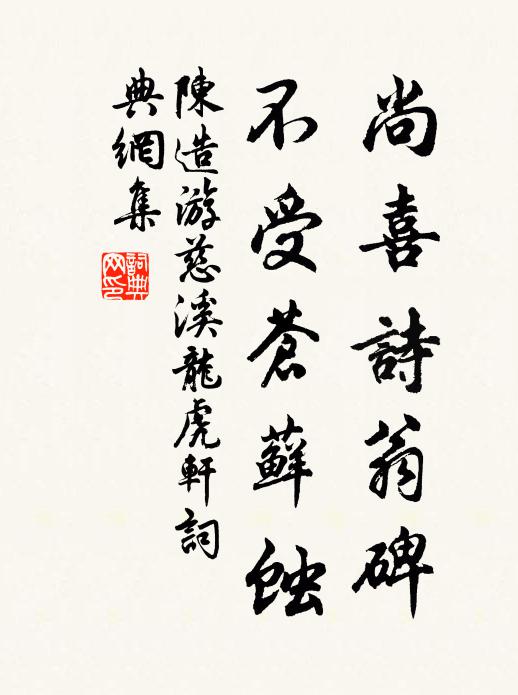 尚喜詩翁碑
不受蒼蘚蝕
陳造游慈溪龍虎軒詞
典網集
詞典
网印